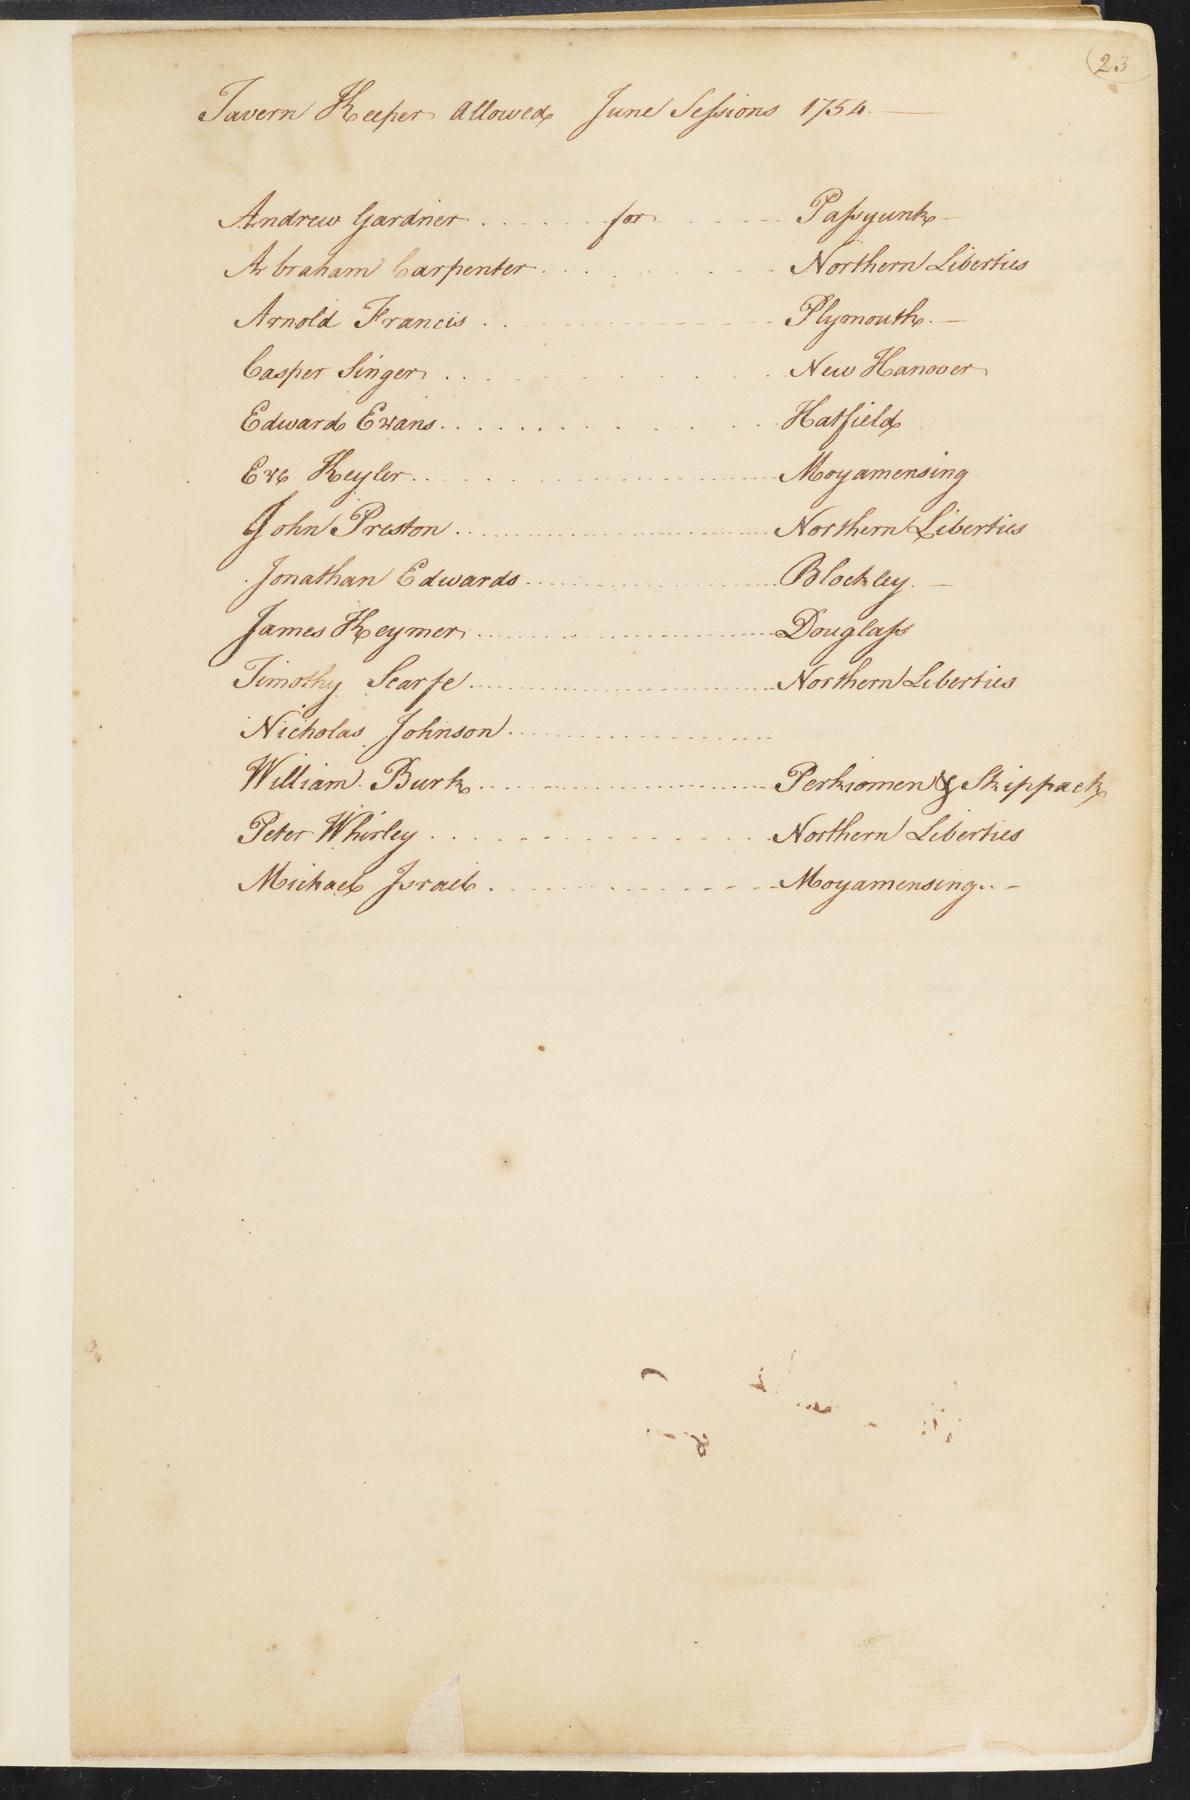 23
Tavern Keeper allowed June Sessions 1754
Andrew Gardner . . . . . . for . . . . . . Passyunk
Abraham Carpenter . . . . . . Northern Liberties
Arnold Francis . . . . . . Plymouth
Casper Singer . . . . . . New Hanover
Edward Evans . . . . . . Hatfield
Eve Keyler . . . . . . Moyamensing
John Preston . . . . . . Northern Liberties
Jonathan Edwards . . . . . . Blockley
James Keymer . . . . . . Douglass
Timothy Scarfe . . . . . . Northern Liberties
Nicholas Johnson . . . . . .
William Burk . . . . . . Perkiomen & Skippack
Peter Whirley . . . . . . Northern Liberties
Michael Israel . . . . . . Moyamensing